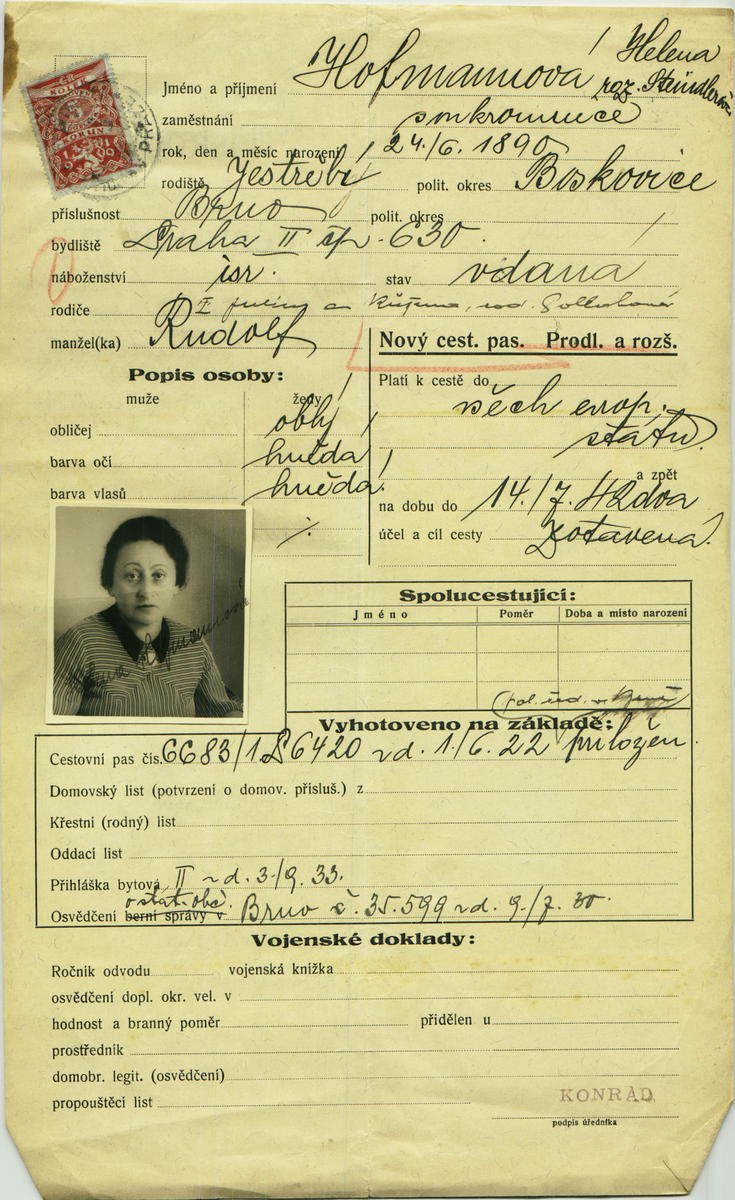 KOLEK
5
KORUN
1919
Jméno a příjmení Hofmannová Helena
roz. Steindlerová
zaměstnání soukromnice
rok, den a měsíc narození 24./6. 1890
rodiště Jestřebí polit. okres Boskovice
příslušnost Brno polit. okres
bydliště Praha II čp. 630.
náboženství isr. stav vdaná
rodiče
manžel(ka) Rudolf
Nový cest. pas. Prodl. a rozš.
Popis osoby:
muže ženy
obličej oblý
barva očí hnědá
barva vlasů hnědá
Platí k cestě do všech evrop.
států
a zpět
na dobu do 14./7. 42 dva
účel a cíl cesty Zotavená.
Spolucestující:
Jméno Poměr Doba a místo narození
Vyhotoveno na základě:
Cestovní pas čís. 6683/1 z d. 1./6. 22 přiložen.
Domovský list (potvrzení o domov. přísluš.) z
Křestní (rodný) list
Oddací list
Přihláška bytová II z d. 3./9. 33.
o stát. obč.
Osvědčení berní správy v Brno č. 35.599 z d. 9./7. 30.
Vojenské doklady:
Ročník odvodu vojenská knížka
osvědčení dopl. okr. vel. v
hodnost a branný poměr přidělen u
prostředník
domobr. legit. (osvědčení)
propouštěcí list
KONRÁD
podpis úředníka